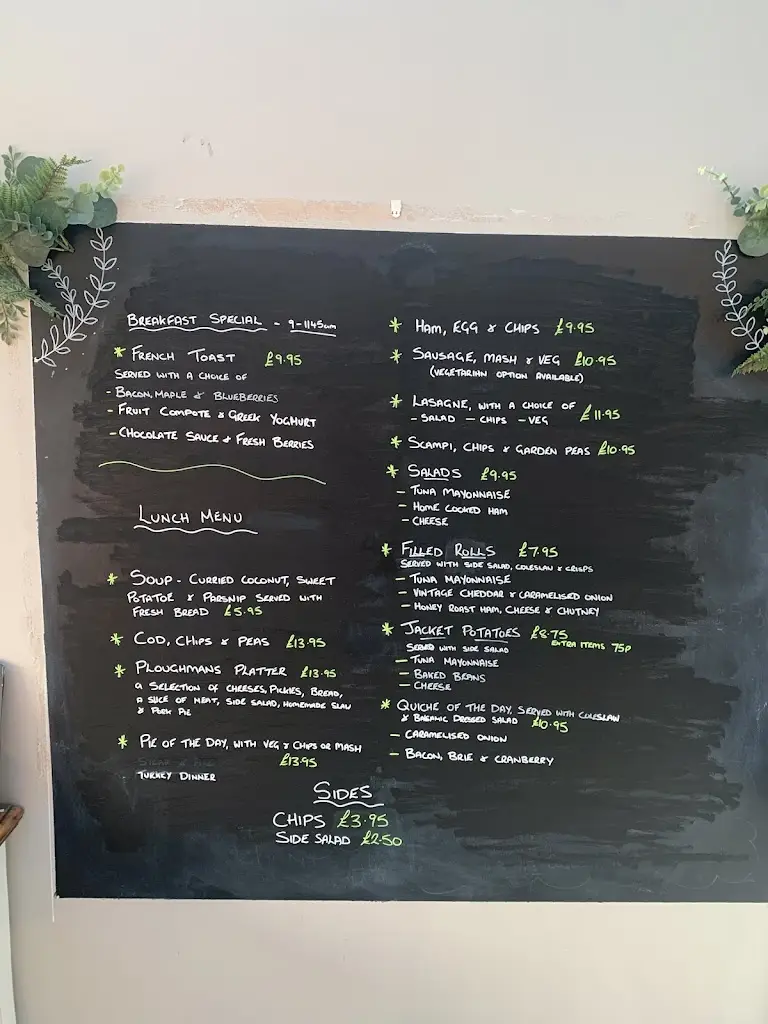 BREAKFAST SPECIAL - 9-1145am
* FRENCH TOAST £9.95
SERVED WITH A CHOICE OF
- BACON, MAPLE & BLUEBERRIES
- FRUIT COMPOTE & GREEK YOGHURT
- CHOCOLATE SAUCE & FRESH BERRIES
LUNCH MENU
* SOUP - CURRIED COCONUT, SWEET
POTATO & PARSNIP SERVED WITH
FRESH BREAD £5.95
* COD, CHIPS & PEAS £13.95
* PLOUGHMANS PLATTER £13.95
A SELECTION OF CHEESES, PICKLES, BREAD,
A SLICE OF MEAT, SIDE SALAD, HOMEMADE SLAW
& PORK PIE
* PIE OF THE DAY, WITH VEG & CHIPS OR MASH
£13.95
TURKEY DINNER
* HAM, EGG & CHIPS £9.95
* SAUSAGE, MASH & VEG £10.95
(VEGETARIAN OPTION AVAILABLE)
* LASAGNE, WITH A CHOICE OF £11.95
- SALAD - CHIPS - VEG
* SCAMPI, CHIPS & GARDEN PEAS £10.95
* SALADS £9.95
- TUNA MAYONNAISE
- HOME COOKED HAM
- CHEESE
* FILLED ROLLS £7.95
SERVED WITH SIDE SALAD, COLESLAW & CRISPS
- TUNA MAYONNAISE
- VINTAGE CHEDDAR & CARAMELISED ONION
- HONEY ROAST HAM, CHEESE & CHUTNEY
* JACKET POTATOES £8.75
SERVED WITH SIDE SALAD EXTRA ITEMS 75P
- TUNA MAYONNAISE
- BAKED BEANS
- CHEESE
* QUICHE OF THE DAY, SERVED WITH COLESLAW
& BALSAMIC DRESSED SALAD £10.95
- CARAMELISED ONION
- BACON, BRIE & CRANBERRY
SIDES
CHIPS £3.95
SIDE SALAD £2.50